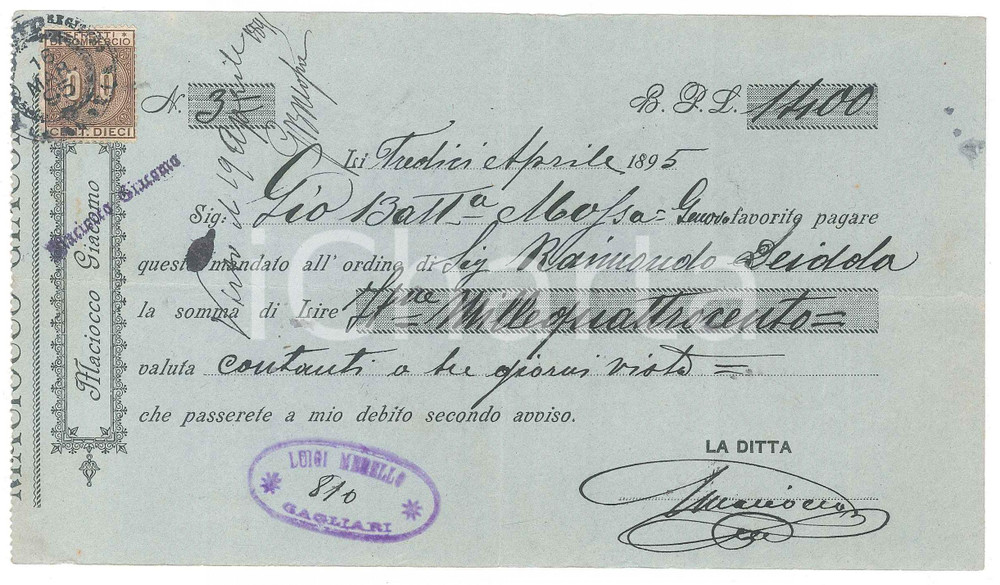 EFFETTI
DI COMMERCIO
CENT. DIECI
N. 3
B. P. L. 1400
19 Aprile 1895
Li Tredici Aprile 1895
Sig. Gio Batta Mossa = Genova favorite pagare
questo mandato all' ordine di Sig Raimondo Deidola
la somma di Lire Millequattrocento =
valuta contanti a tre giorni vista =
che passerete a mio debito secondo avviso.
LA DITTA
Maciocco Giacomo
MACIOCCO GIACOMO
LUIGI MERELLO
810
CAGLIARI
iCharta